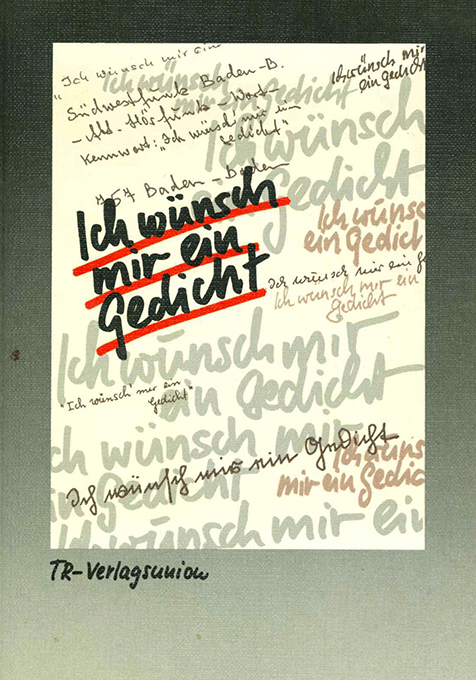 Ich wünsch mir ein
"Südwestfunk Baden-B.
-Abt. Hörfunk-Wort-
Kennwort: "Ich wünsch' mir ein
Gedicht"
757 Baden-Baden
Ich wünsch
mir ein
Gedicht
Ich wünsch mir
ein Gedicht
Ich wünsch mir
ein Gedicht
Ich wünsch
ein Gedicht
Ich wünsch mir ein
Ich wünsch mir ein
Gedicht
Ich wünsch mir
ein Gedicht
"Ich wünsch' mer ein
Gedicht"
Ich wünsch mir
ein Gedicht
Ich wünsch mir ein Gedicht
Ich wüns
mir ein Gedic
Ich wünsch mir ein
TR-Verlagsunion